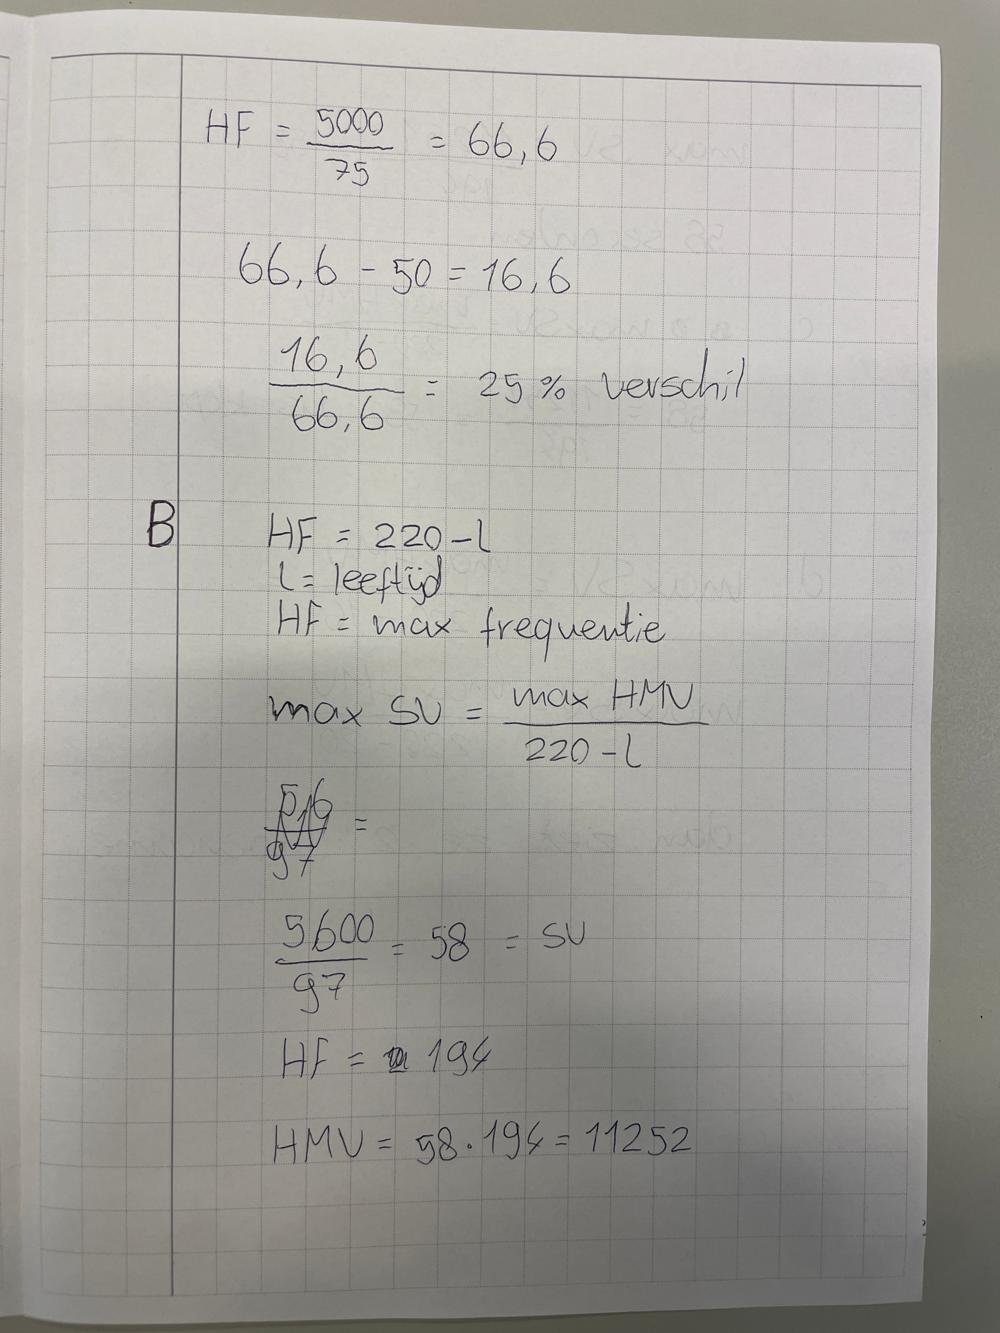 HF = 5000/75 = 66,6
66,6 - 50 = 16,6
16,6/66,6 = 25% verschil
B HF = 220-l
l = leeftijd
HF = max frequentie
max SV = max HMV/220-l
5,6/97 =
5600/97 = 58 = SV
HF = 194
HMV = 58 · 194 = 11252